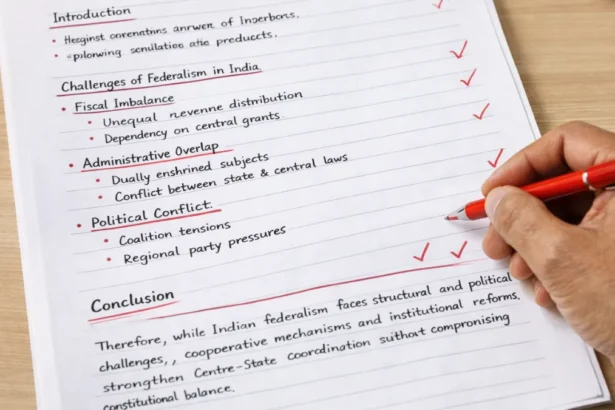 Introduction
• of
• products.
Challenges of Federalism in India
• Fiscal Imbalance
• Unequal revenue distribution
• Dependency on central grants
• Administrative Overlap
• Dually enshrined subjects
• Conflict between state & central laws
• Political Conflict.
• Coalition tensions
• Regional party pressures
Conclusion
Therefore, while Indian federalism faces structural and political
challenges, , cooperative mechanisms and institutional reforms.
strengthen Centre-State coordination compromising
constitutional balance.